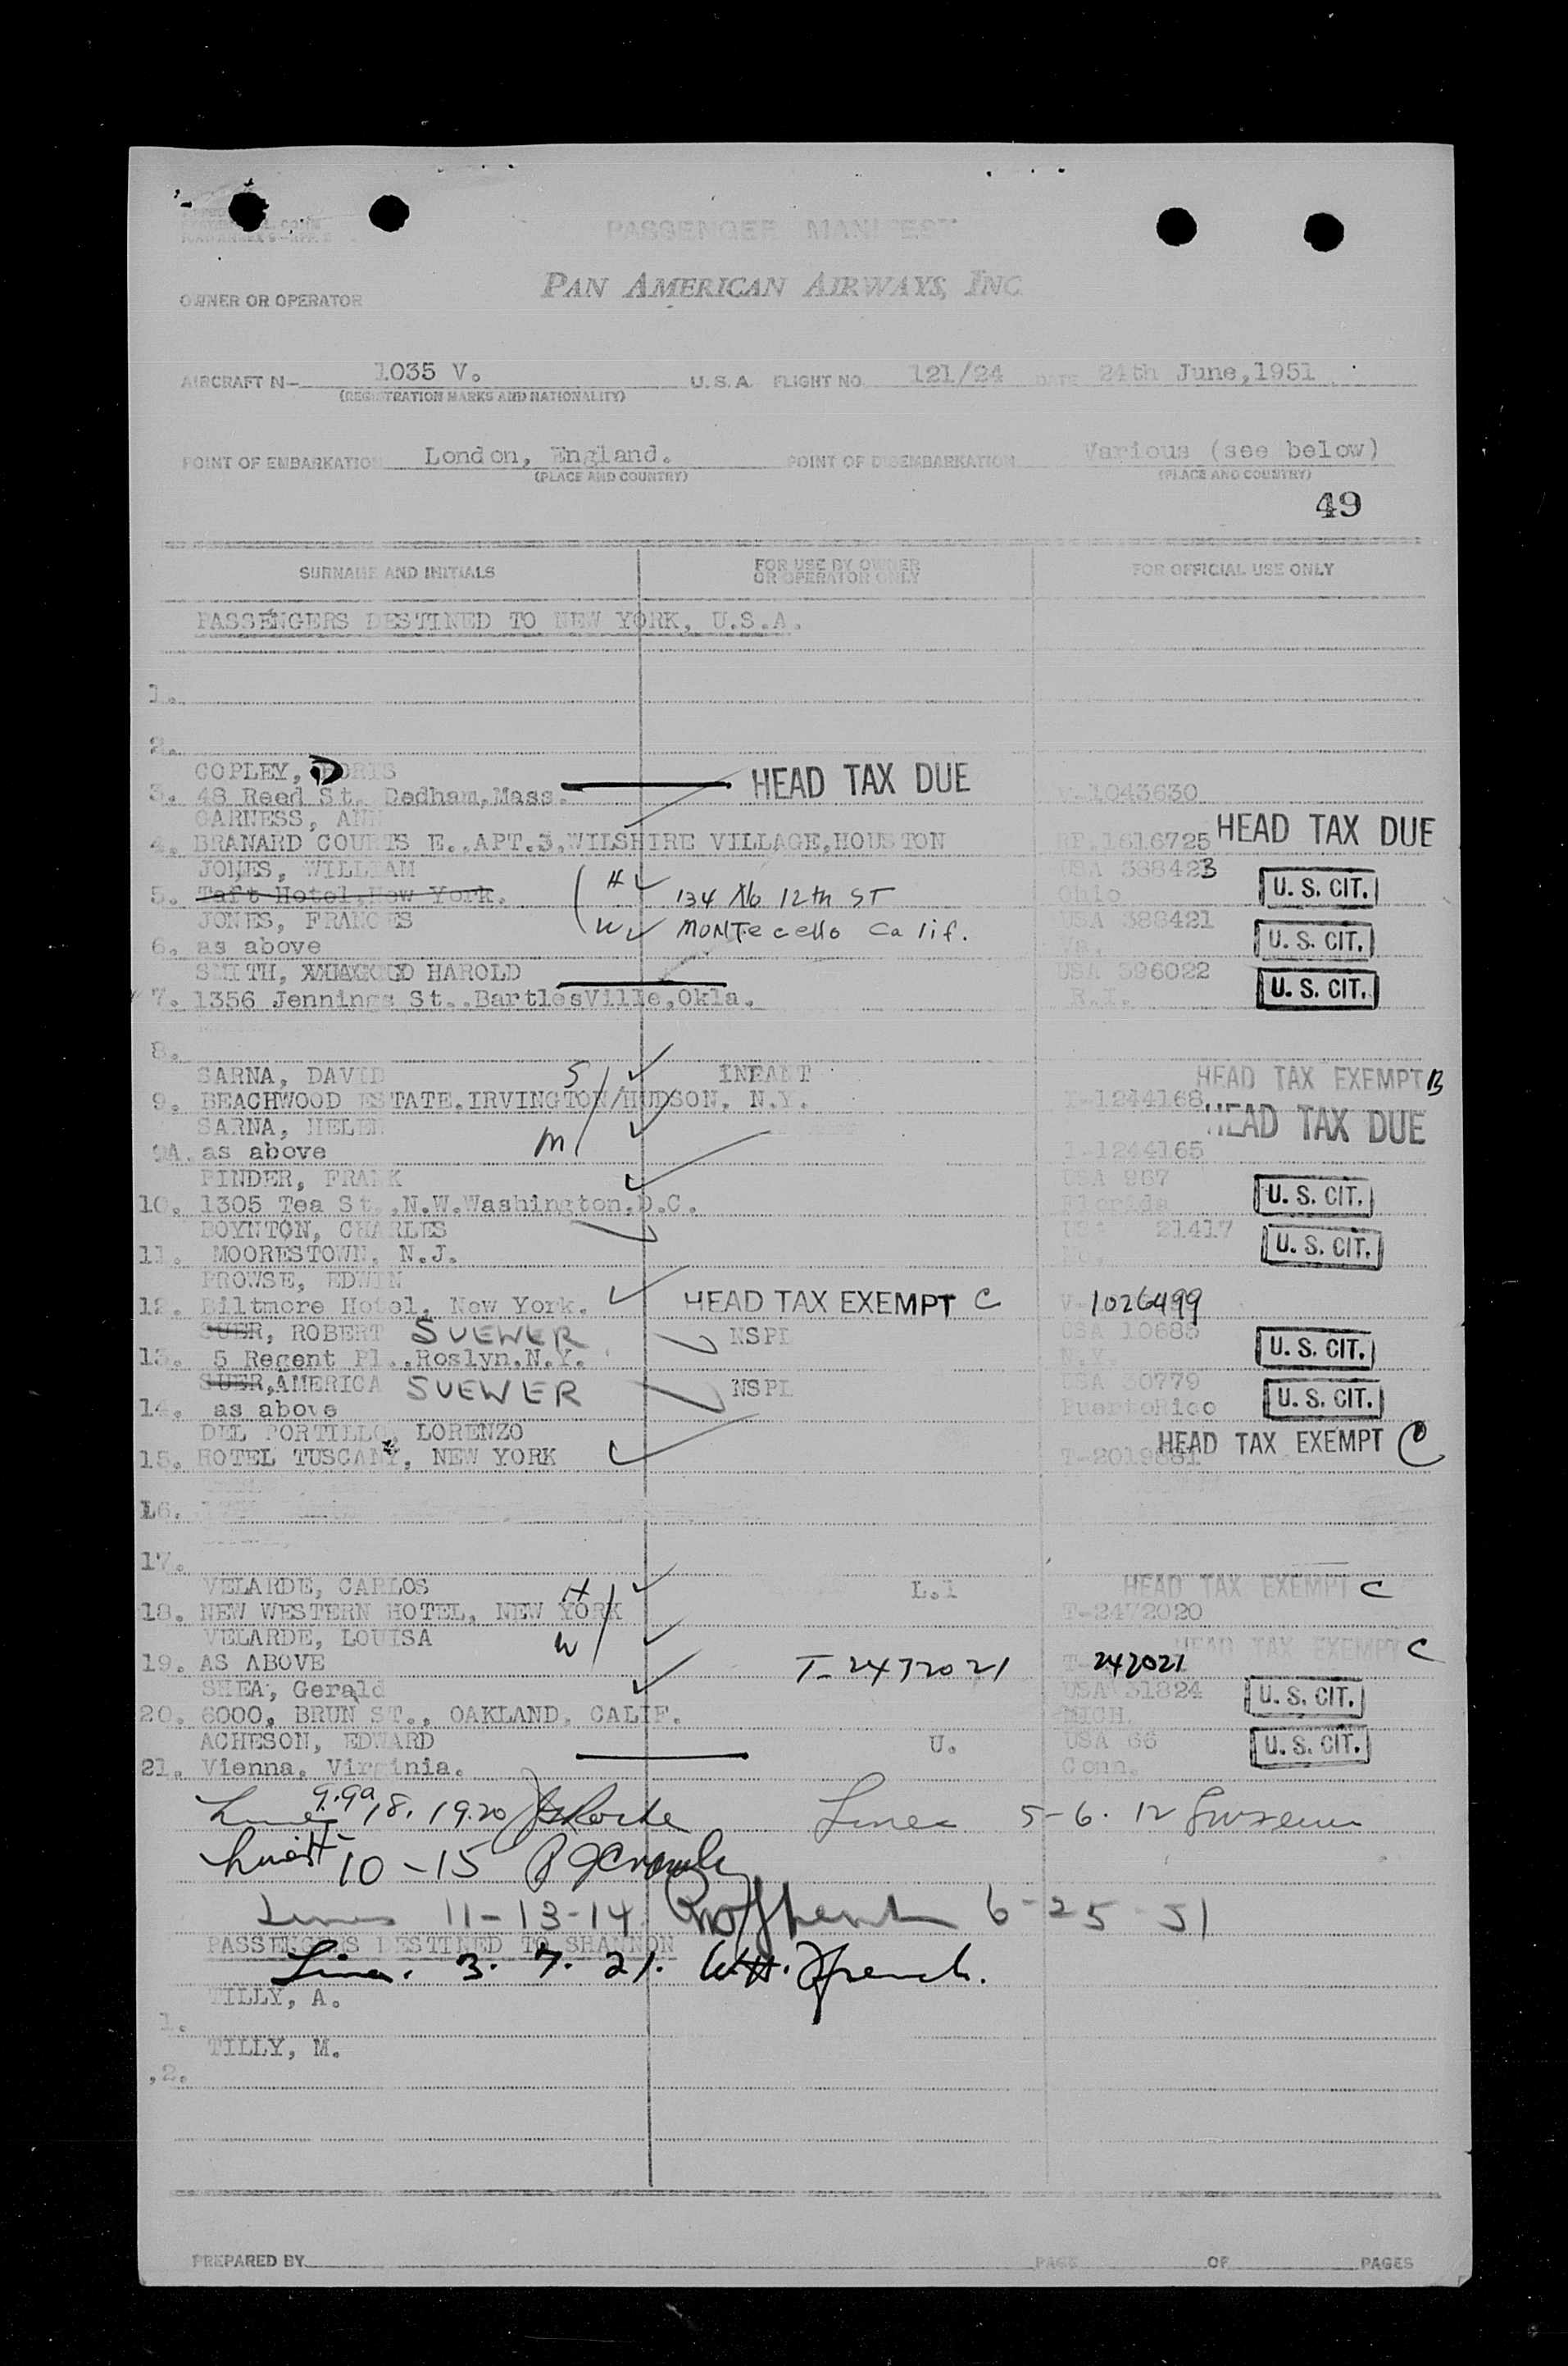 PASSENGER MANIFEST
PAN AMERICAN AIRWAYS, INC.
OWNER OR OPERATOR
AIRCRAFT N- 1035 V. U.S.A. FLIGHT NO. 121/24 DATE 24th June,1951
(REGISTRATION MARKS AND NATIONALITY)
POINT OF EMBARKATION London, England. POINT OF DISEMBARKATION Various (see below)
(PLACE AND COUNTRY) (PLACE AND COUNTRY)
49
SURNAME AND INITIALS FOR USE BY OWNER OR OPERATOR ONLY FOR OFFICIAL USE ONLY
PASSENGERS DESTINED TO NEW YORK, U.S.A.
1.
2.
COPLEY, DORIS HEAD TAX DUE
3. 48 Reed St. Dedham,Mass. V-1043630
GARNESS, ANN HEAD TAX DUE
4. BRANARD COURTS E.,APT.3,WILSHIRE VILLAGE,HOUSTON RP.1616725
JONES, WILLIAM H USA 388423 U. S. CIT.
5. Taft Hotel,New York. 134 No 12th ST Ohio
JONES, FRANCES W MONTecello Calif. USA 388421 U. S. CIT.
6. as above Va.
SMITH, HAROLD USA 596022 U. S. CIT.
7. 1356 Jennings St..BartlesVille,Okla. R.I.
8.
SARNA, DAVID S INFANT HEAD TAX EXEMPT B
9. BEACHWOOD ESTATE.IRVINGTON/HUDSON, N.Y. I-1244168
SARNA, HELEN M HEAD TAX DUE
9A. as above I-1244165
PINDER, FRANK USA 967 U. S. CIT.
10. 1305 Tea St..N.W.Washington.D.C. Florida
BOYNTON, CHARLES USA 21417 U. S. CIT.
11. MOORESTOWN, N.J. Mo.
PROWSE, EDWIN
12. Biltmore Hotel, New York. HEAD TAX EXEMPT C V-1026499
SUER, ROBERT SUEWER NSPL USA 10685 U. S. CIT.
13. 5 Regent Pl..Roslyn.N.Y. N.Y.
SUER,AMERICA SUEWER NSPL USA 30779 U. S. CIT.
14. as above PuertoRico
DEL PORTILLO, LORENZO HEAD TAX EXEMPT C
15. HOTEL TUSCANY, NEW YORK T-2019881
16.
17.
VELARDE, CARLOS H L.1 HEAD TAX EXEMPT C
18. NEW WESTERN HOTEL, NEW YORK T-2472020
VELARDE, LOUISA W HEAD TAX EXEMPT C
19. AS ABOVE T-2472021 T-242021
SHEA, Gerald USA 31824 U. S. CIT.
20. 6000, BRUN ST., OAKLAND, CALIF. MICH.
ACHESON, EDWARD U. USA 66 U. S. CIT.
21. Vienna, Virginia. Conn.
Lines 9.9a,18.19.20 Lines 5-6.12
Lines 10-15
Lines 11-13-14 6-25-51
PASSENGERS DESTINED TO SHANNON
Line. 3. 7. 21. W.H. French.
TILLY, A.
1.
TILLY, M.
2.
PREPARED BY PAGE OF PAGES